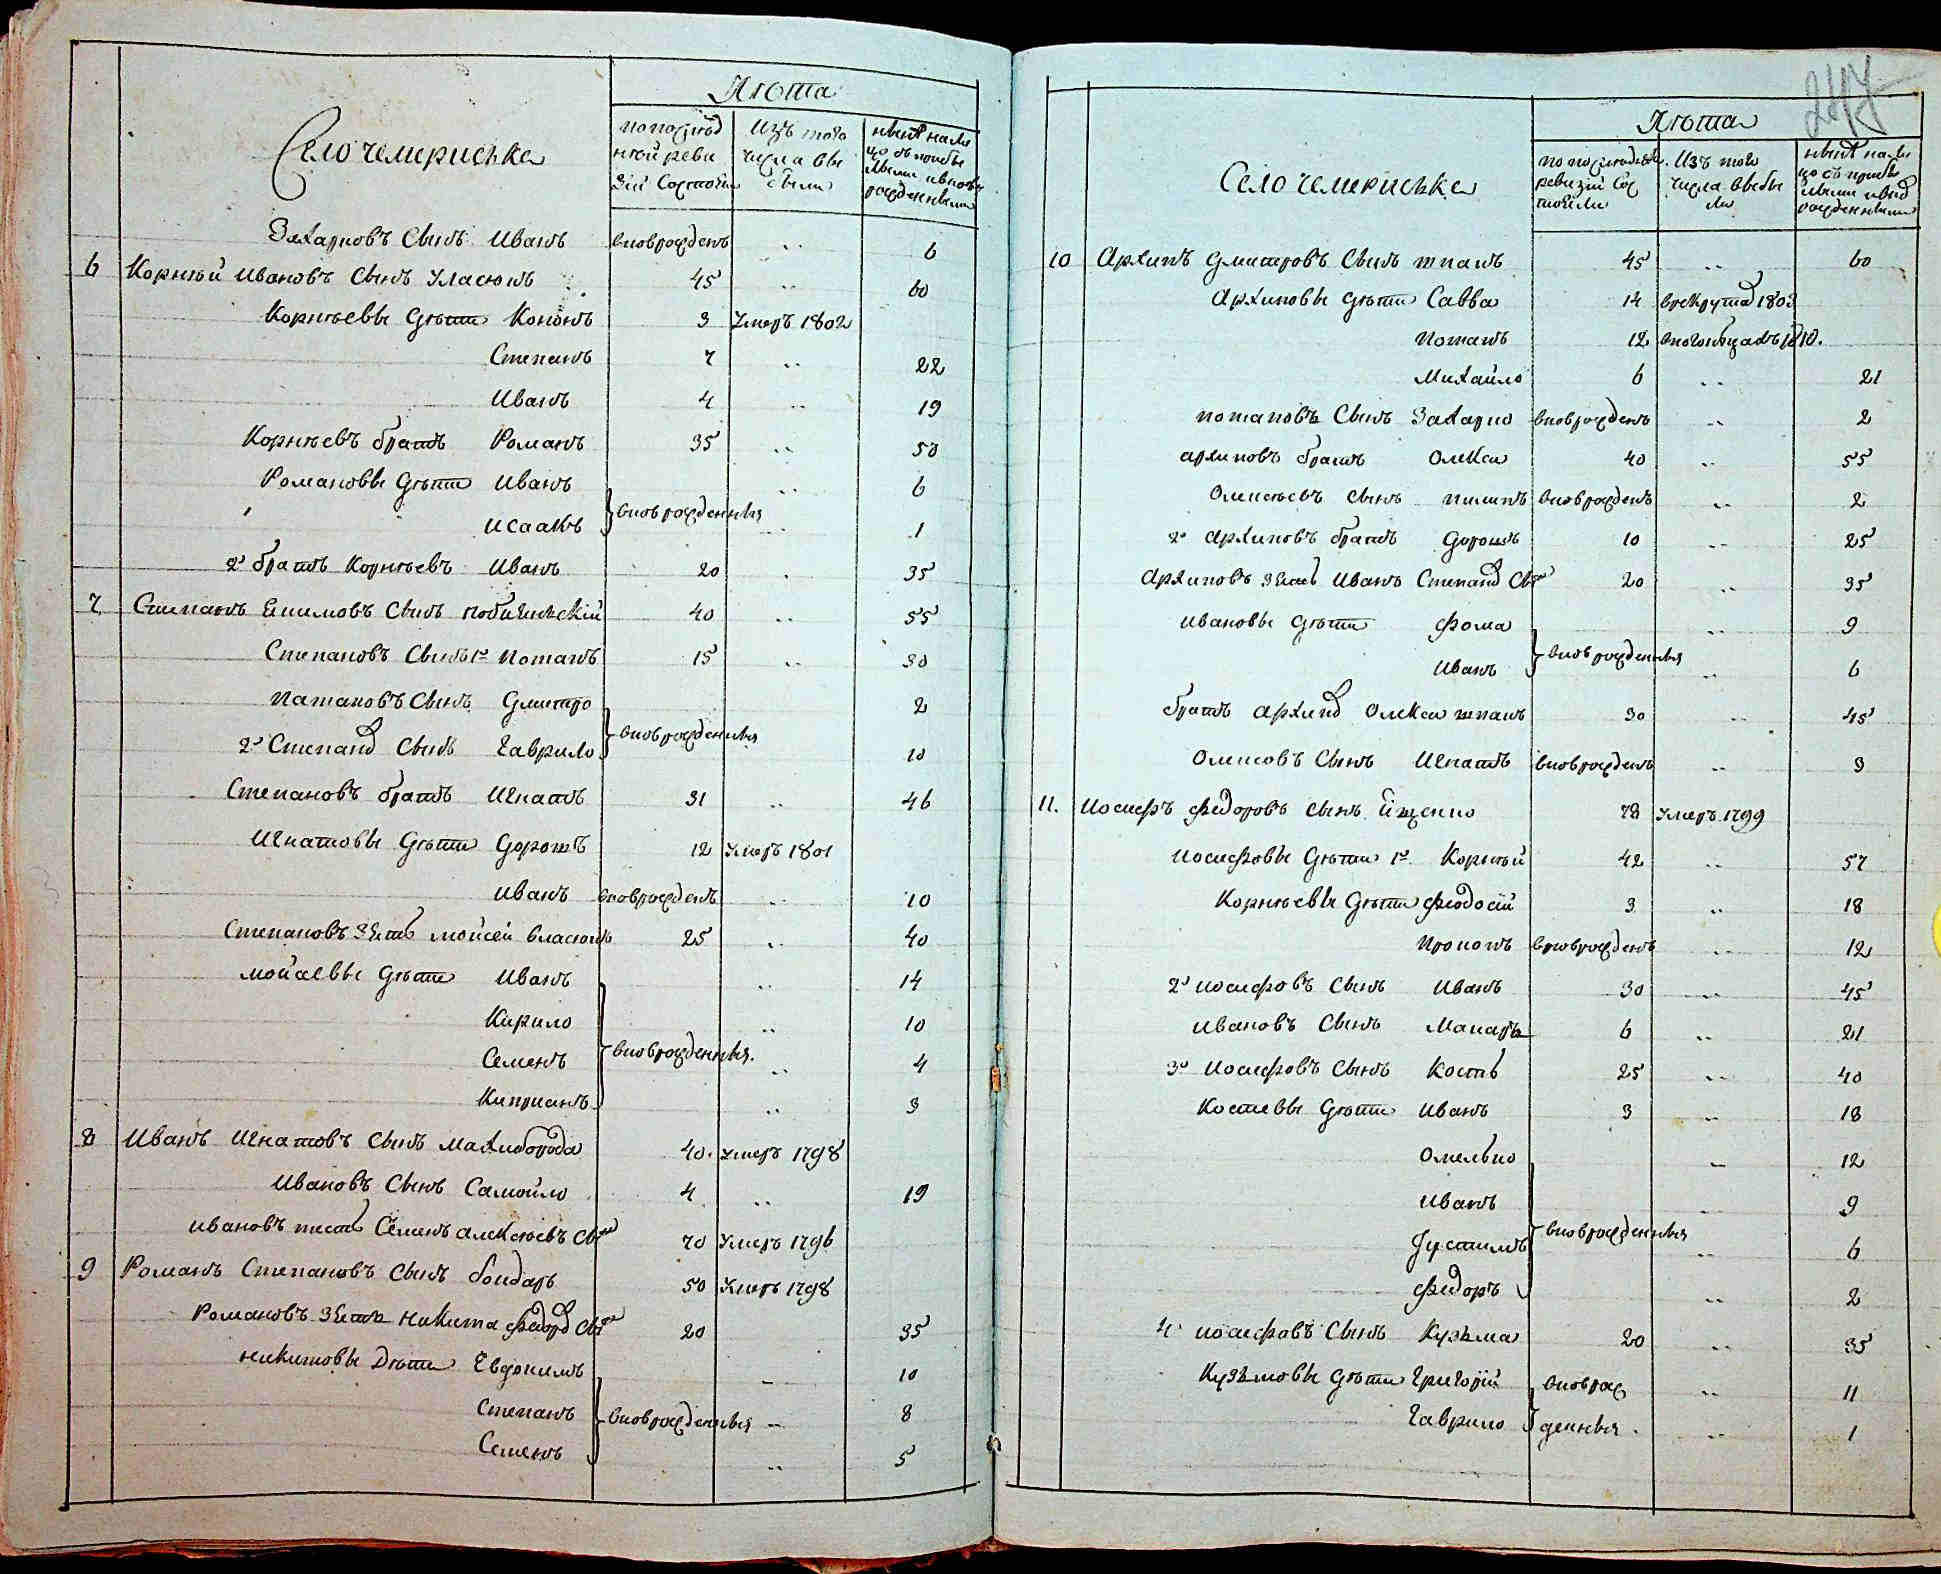 Лѣта
Село Чемериська
по последней ревизіи состояли
Изъ того числа выбыли
ныне на лицо съ прибылыми и вновь рожденными
Захарковъ Сынъ Иванъ вновь рожденъ .. 6
6 Корнѣй Ивановъ Сынъ Уласюкъ 45 .. 60
Корнѣевы Дѣти Кононъ 3 Умеръ 1802
Степанъ 7 .. 22
Иванъ 4 .. 19
Корнѣевъ братъ Романъ 35 .. 50
Романовы Дѣти Иванъ .. 6
вновь рожденныя
Исаакъ .. 1
2й братъ Корнѣевъ Иванъ 20 . 35
7 Степанъ Сынъ 40 .. 55
Степановъ Сынъ 1й Потапъ 15 .. 30
Патаповъ Сынъ Дмитро 2
вновь рожденныя
2й Степана Сынъ Гаврило 10
Степановъ братъ Игнатъ 31 .. 46
Игнатовы Дѣти Дорошъ 12 Умеръ 1801
Иванъ вновь рожденъ .. 10
Степановъ Зять Мойсей Власюкъ 25 .. 40
Мойсеевы Дѣти Иванъ .. 14
Кирило .. 10
вновь рожденныя.
Семенъ .. 4
Киприанъ .. 3
8 Иванъ Игнатовъ Сынъ Махноборода 40. Умеръ 1798
Ивановъ Сынъ Самойло 4 .. 19
Ивановъ тесть Семенъ Алексѣевъ Сынъ 70 Умеръ 1796
9 Романъ Степановъ Сынъ бондарь 50 Умеръ 1798
Романовъ Зять Никита Федоровъ Сынъ 20 35
Никитовы Дѣти Евдокимъ .. 10
Степанъ вновь рожденныя .. 8
Семенъ .. 5
247
Лѣта
Село Чемериська
по последней ревизіи состояли
Изъ того числа выбыли
ныне на лицо съ прибылыми и вновь рожденными
10 Архипъ Дмитровъ Сынъ шпакъ 45 .. 60
Архиповы Дѣти Савва 14 в рекруты 1803
Потапъ 12 1810.
Михайло 6 .. 21
Потаповъ Сынъ Захарко вновь рожденъ .. 2
Архиповъ братъ Олекса 40 .. 55
Олексѣевъ Сынъ Пилипъ вновь рожденъ .. 2
2й Архиповъ братъ Дорошъ 10 .. 25
Архиповъ Зять Иванъ Степановъ Сынъ 20 .. 35
Ивановы Дѣти Фома .. 9
вновь рожденныя
Иванъ .. 6
братъ Архипа Олекса шпакъ 30 .. 45
Олексовъ Сынъ Игнатъ вновь рожденъ .. 3
11. Иосифъ Федоровъ Сынъ Ищенко 78 Умеръ 1799
Иосифовы Дѣти 1й Корнѣй 42 .. 57
Корнѣевы Дѣти Феодосій 3 .. 18
Прокопъ вновь рожденъ .. 12
2й Иосифовъ Сынъ Иванъ 30 .. 45
Ивановъ Сынъ Макаръ 6 .. 21
3й Иосифовъ Сынъ Кость 25 .. 40
Костевы Дѣти Иванъ 3 .. 18
Омелько .. 12
Иванъ .. 9
вновь рожденныя
Устимъ .. 6
Федоръ .. 2
4й Иосифовъ Сынъ Кузьма 20 .. 35
Кузьмовы Дѣти Григорій вновь рож .. 11
Гаврило денныя. .. 1